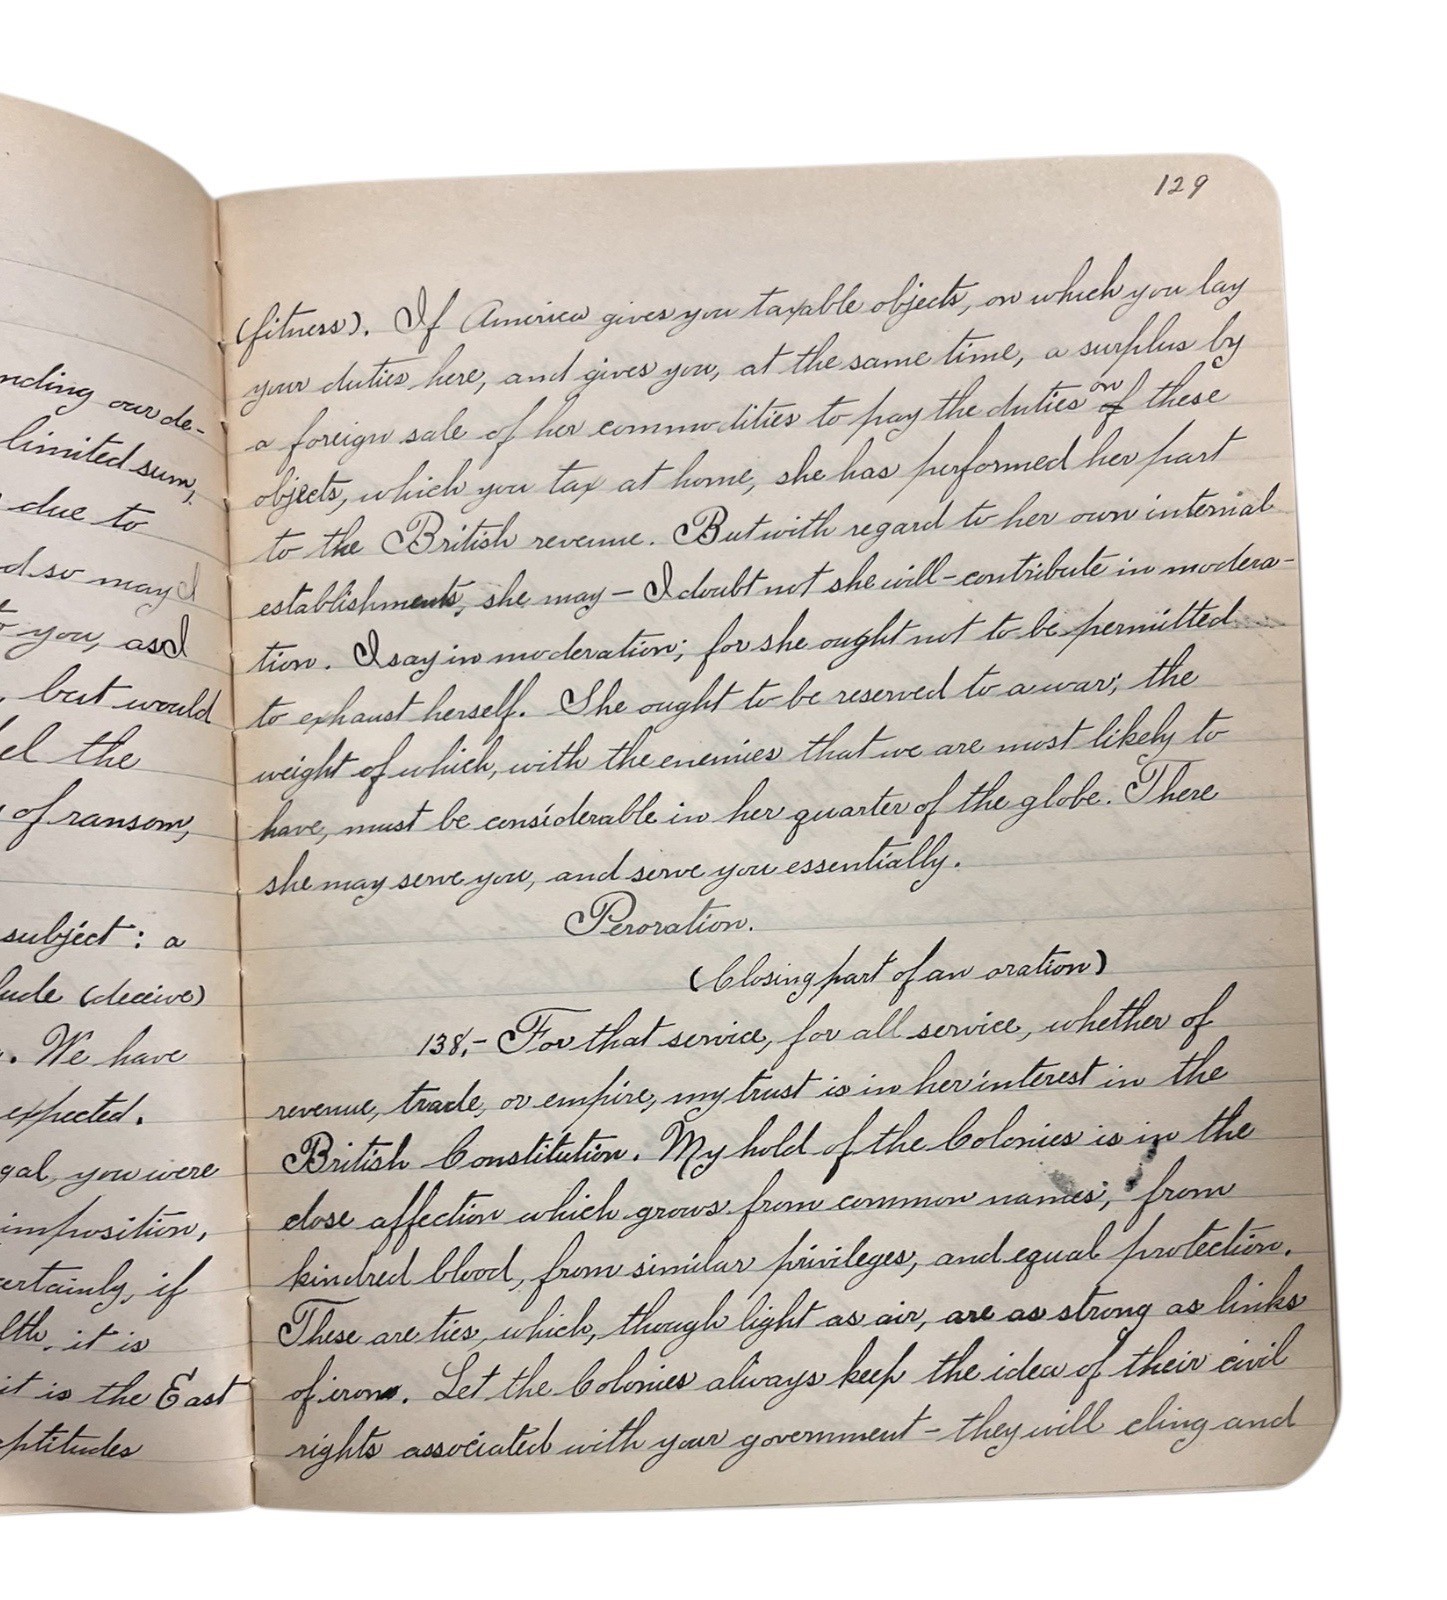 nding our de-
limited sum,
due to
d so may I
to you, as I
, but would
el the
of ransom,
subject : a
lude (deceive)
. We have
expected.
gal, you were
imposition,
certainly, if
lth, it is
it is the East
aptitudes
129
(fitness). If America gives you taxable objects, on which you lay
your duties here, and gives you, at the same time, a surplus by
a foreign sale of her commodities to pay the duties on of these
objects, which you tax at home, she has performed her part
to the British revenue. But with regard to her own internal
establishments, she may – I doubt not she will – contribute in modera-
tion. I say in moderation; for she ought not to be permitted
to exhaust herself. She ought to be reserved to a war; the
weight of which, with the enemies that we are most likely to
have, must be considerable in her quarter of the globe. There
she may serve you, and serve you essentially.
Peroration.
(Closing part of an oration)
138,- For that service, for all service, whether of
revenue, trade, or empire, my trust is in her interest in the
British Constitution. My hold of the Colonies is in the
close affection which grows from common names; from
kindred blood, from similar privileges, and equal protection.
These are ties, which, though light as air, are as strong as links
of iron. Let the Colonies always keep the idea of their civil
rights associated with your government – they will cling and